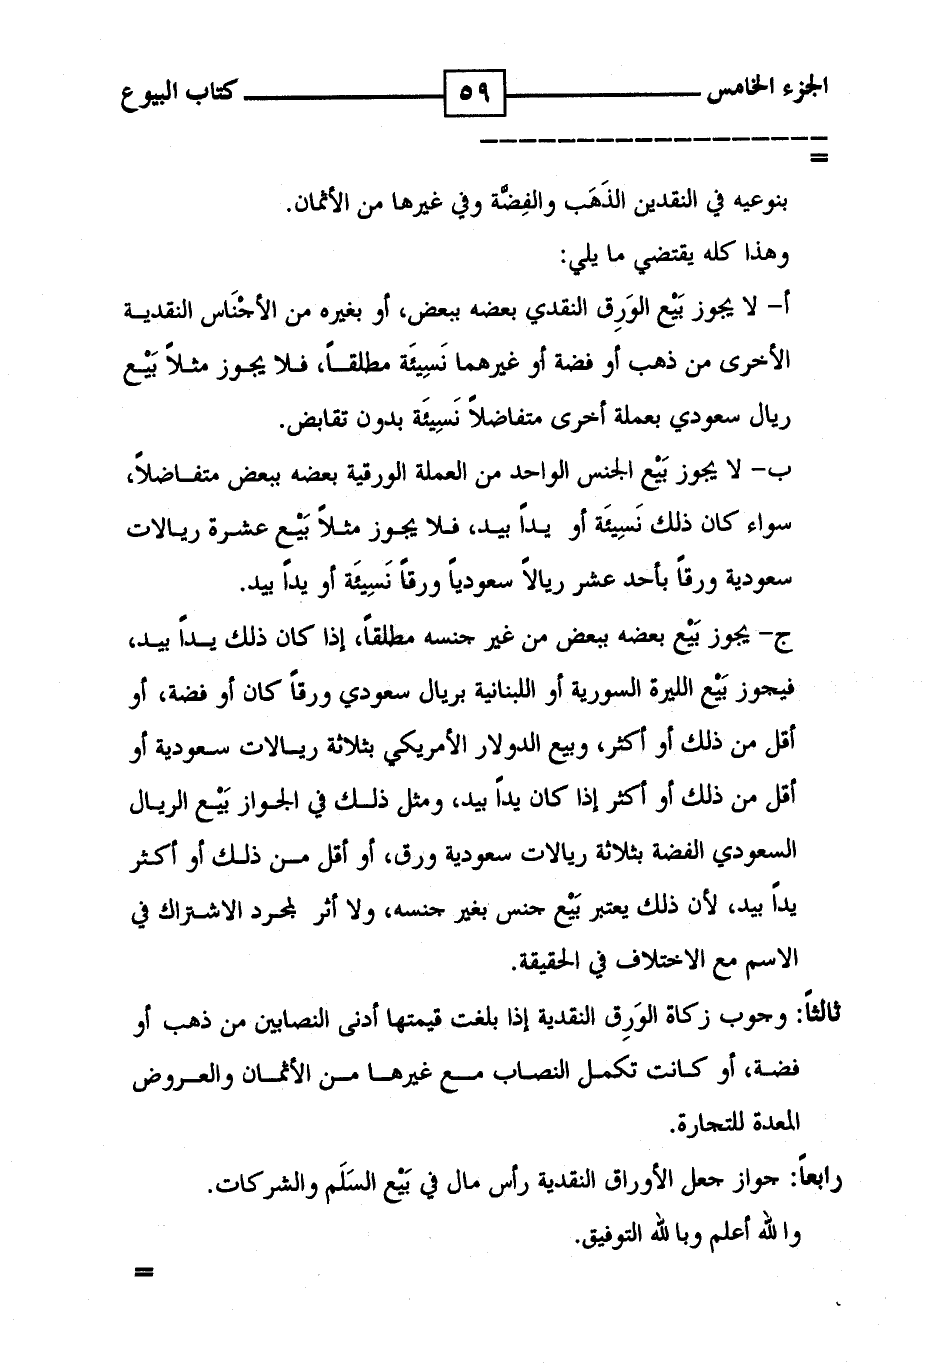 الجزء الخامس ٥٩ كتاب البيوع
=
بنوعيه في النقدين الذَهَب والفِضَّة وفي غيرها من الأثمان.
وهذا كله يقتضي ما يلي:
أ- لا يجوز بَيْع الوَرِق النقدي بعضه ببعض، أو بغيره من الأجْنَاس النقدية
الأخرى من ذهب أو فضة أو غيرهما نَسِيئَة مطلقاً، فلا يجوز مثلاً بَيْع
ريال سعودي بعملة أخرى متفاضلاً نَسِيئَة بدون تقابض.
ب- لا يجوز بَيْع الجنس الواحد من العملة الورقية بعضه ببعض متفاضلاً،
سواء كان ذلك نَسِيئَة أو يداً بيد، فلا يجوز مثلاً بَيْع عشرة ريالات
سعودية ورقاً بأحد عشر ريالاً سعودياً ورقاً نَسِيئَة أو يداً بيد.
ج- يجوز بَيْع بعضه ببعض من غير جنسه مطلقاً، إذا كان ذلك يداً بيد،
فيجوز بَيْع الليرة السورية أو اللبنانية بريال سعودي ورقاً كان أو فضة، أو
أقل من ذلك أو أكثر، وبيع الدولار الأمريكي بثلاثة ريالات سعودية أو
أقل من ذلك أو أكثر إذا كان يداً بيد، ومثل ذلك في الجواز بَيْع الريال
السعودي الفضة بثلاثة ريالات سعودية ورق، أو أقل من ذلك أو أكثر
يداً بيد، لأن ذلك يعتبر بَيْع جنس بغير جنسه، ولا أثر لمجرد الاشتراك في
الاسم مع الاختلاف في الحقيقة.
ثالثاً: وجوب زكاة الوَرِق النقدية إذا بلغت قيمتها أدنى النصابين من ذهب أو
فضة، أو كانت تكمل النصاب مع غيرها من الأثمان والعروض
المعدة للتجارة.
رابعاً: جواز جعل الأوراق النقدية رأس مال في بَيْع السَلَم والشركات.
والله أعلم وبالله التوفيق.
=